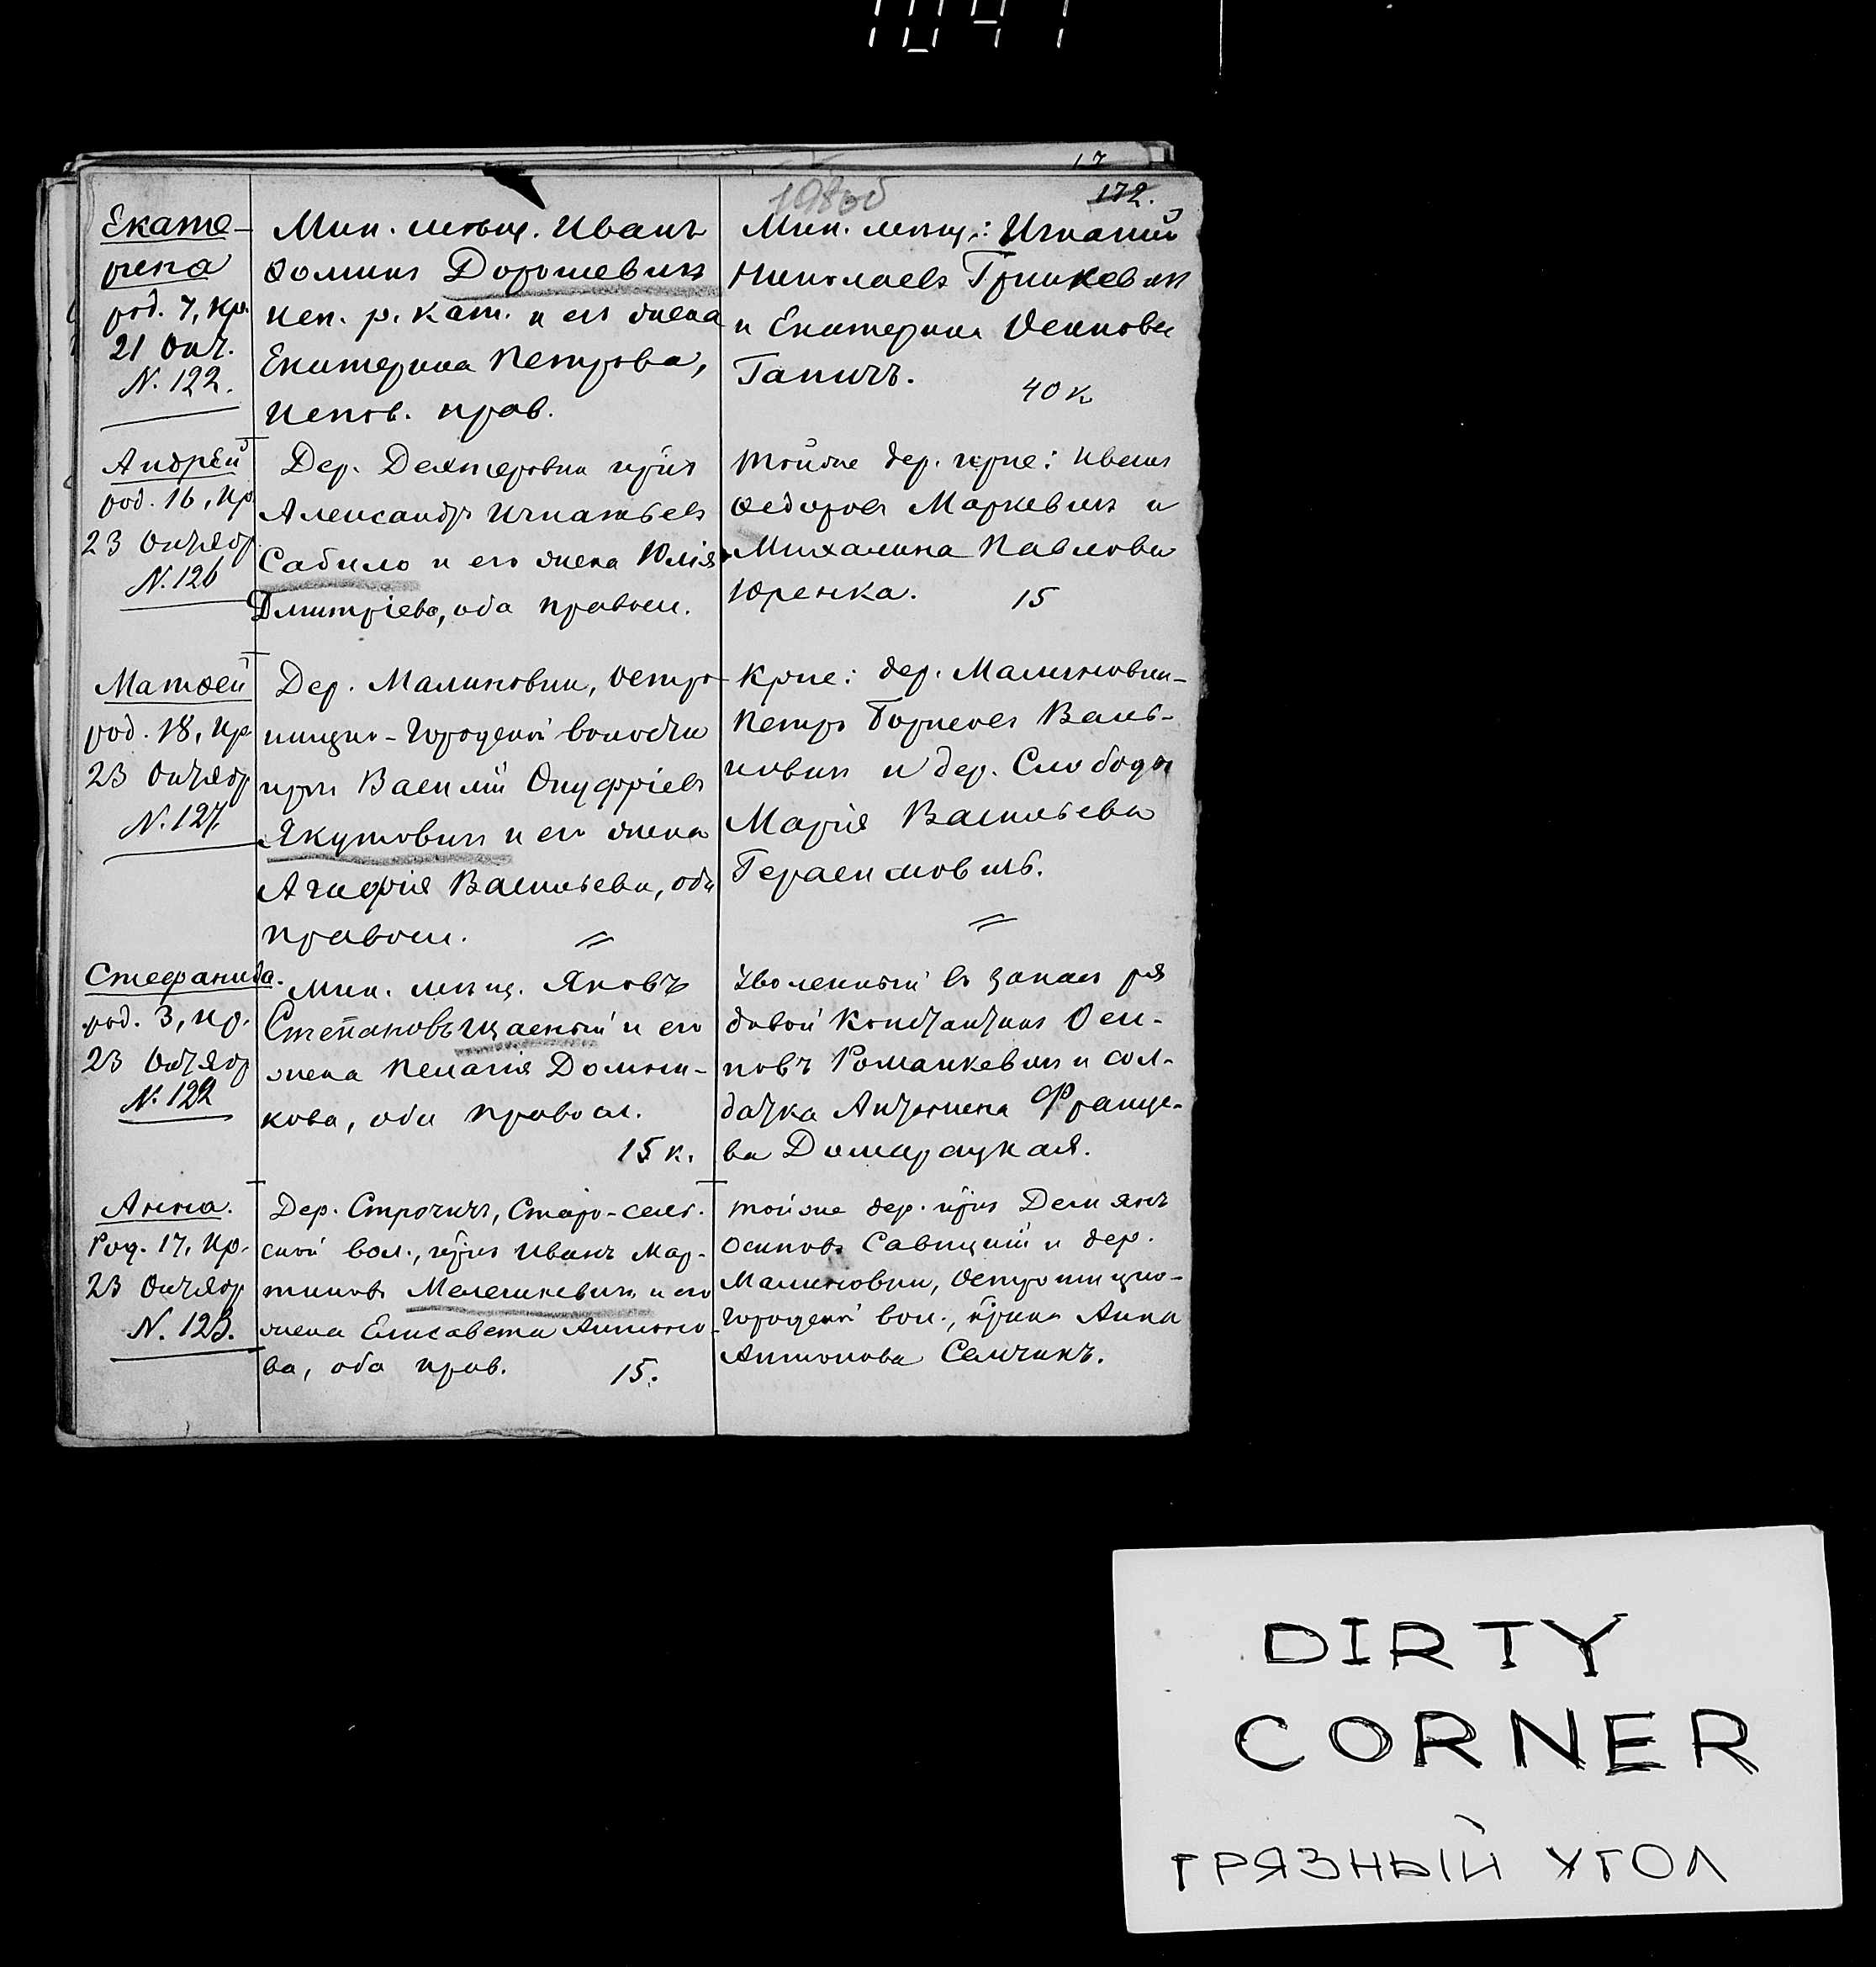 17
172.
198об
Екате-
рина
род. 7, кр.
21 Окт.
N. 122.
Мин. мѣщ. Иванъ
Ѳоминъ Дорошевичъ
исп. р. кат. и его жена
Екатерина Петрова,
испов. прав.
Мин. мѣщ.: Игнатій
Николаевъ Гринкевичъ
и Екатерина Осипова
Гапичъ.
40 к
Андрей
род. 16, кр.
23 Октябр.
N. 126
Дер. Дегтяровки кр-нъ
Александръ Игнатьевъ
Сабило и его жена Юлія
Дмитріева, оба правосл.
Тойже дер. кр-не: Иванъ
Ѳедоровъ Маркевичъ и
Михалина Павлова
Юренка.
15
Матѳей
род. 18, кр
23 Октябр
N. 127.
Дер. Малиновки, Остро-
шицко-Городской волости
кр-нъ Василій Онуфріевъ
Якутовичъ и его жена
Агафія Васильева, оба
правосл.
Кр-не: дер. Малиновки-
Петръ Васи-
и дер. Слободы
Марія Васильева
Герасимовичъ.
Стефанида.
род. 3, кр.
23 Октябр
N. 122
Мин. мѣщ. Яковъ
Степановъ и его
жена Пелагія Домини-
кова, оба правосл.
15 к.
Уволенный въ запасъ ря
довой Константинъ Оси-
повъ Романкевичъ и сол-
датка Антонина Францe-
ва Домарацкая.
Анна.
Род. 17, кр.
23 Октябр
N. 123.
Дер. Строчицъ, Старо-сель-
ской вол., кр-нъ Иванъ Мар-
тиновъ Мелешкевичъ и его
жена Елисавета Антоно-
ва, оба прав.
15.
Тойже дер. кр-нъ Демьянъ
Осиповъ Савицкій и дер.
Малиновки, Острошицко-
Городской вол., кр-нка Анна
Антонова Семчикъ.
DIRTY
CORNER
ГРЯЗНЫЙ УГОЛ